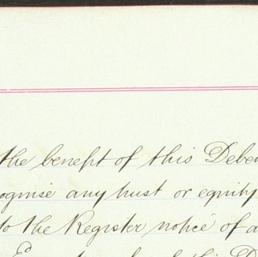 the benefit of this Debe
ognise any trust or equity
to the Register notice of a